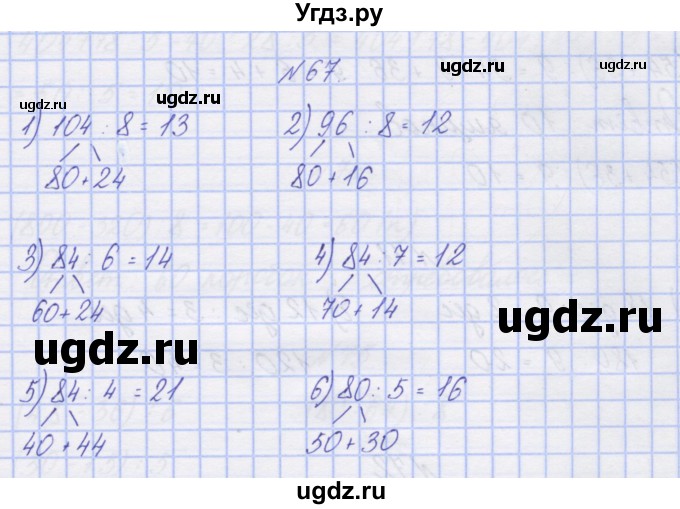 Угдз.ру
№67.
1) 104 : 8 = 13 2) 96 : 8 = 12
80+24 80+16
3) 84 : 6 = 14 4) 84 : 7 = 12
60+24 70+14
5) 84 : 4 = 21 6) 80 : 5 = 16
40+44 50+30
ugdz.ru
ugdz.ru
ugdz.ru
ugdz.ru
ugdz.ru
ugdz.ru
ugdz.ru
ugdz.ru
ugdz.ru
ugdz.ru